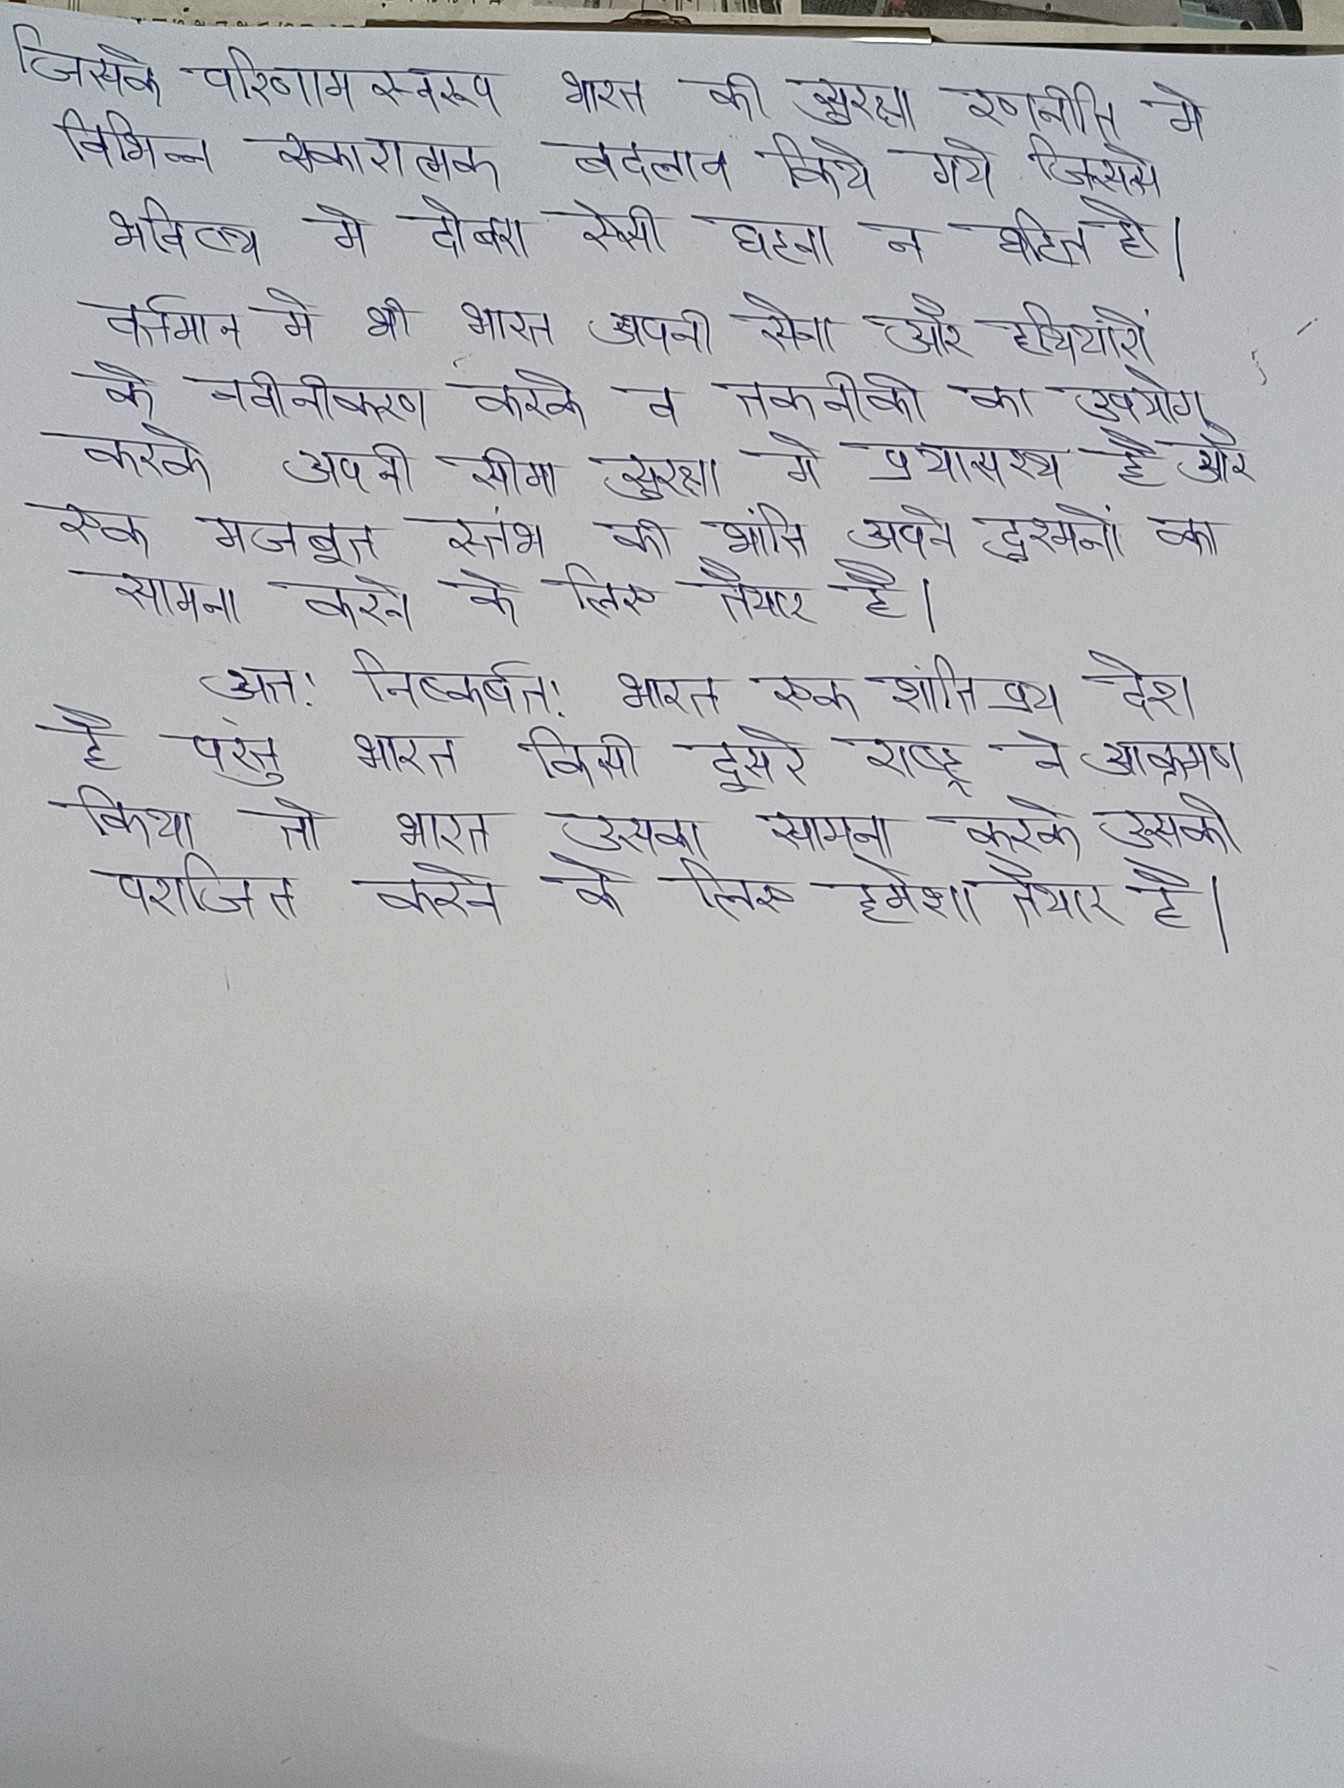 जिसके परिणाम स्वरूप भारत की सुरक्षा रणनीति मे
विभिन्न सकारात्मक बदलाव किये गये जिससे
भविष्य मे दोबरा ऐसी घटना न घटित हो।
वर्तमान मे भी भारत अपनी सेना और हथियारों
के नवीनीकरण करके व तकनीको का उपयोग
करके अपनी सीमा सुरक्षा मे है और
एक मजबूत स्तंभ की भांति अपने दुश्मनों का
सामना करने के लिए तैयार है।
अतः निष्कर्षतः भारत एक शांति प्रय देश
है परंतु भारत किसी दूसरे राष्ट्र ने आक्रमण
किया तो भारत उसका सामना करके उसको
पराजित करने के लिए हमेशा तैयार है।